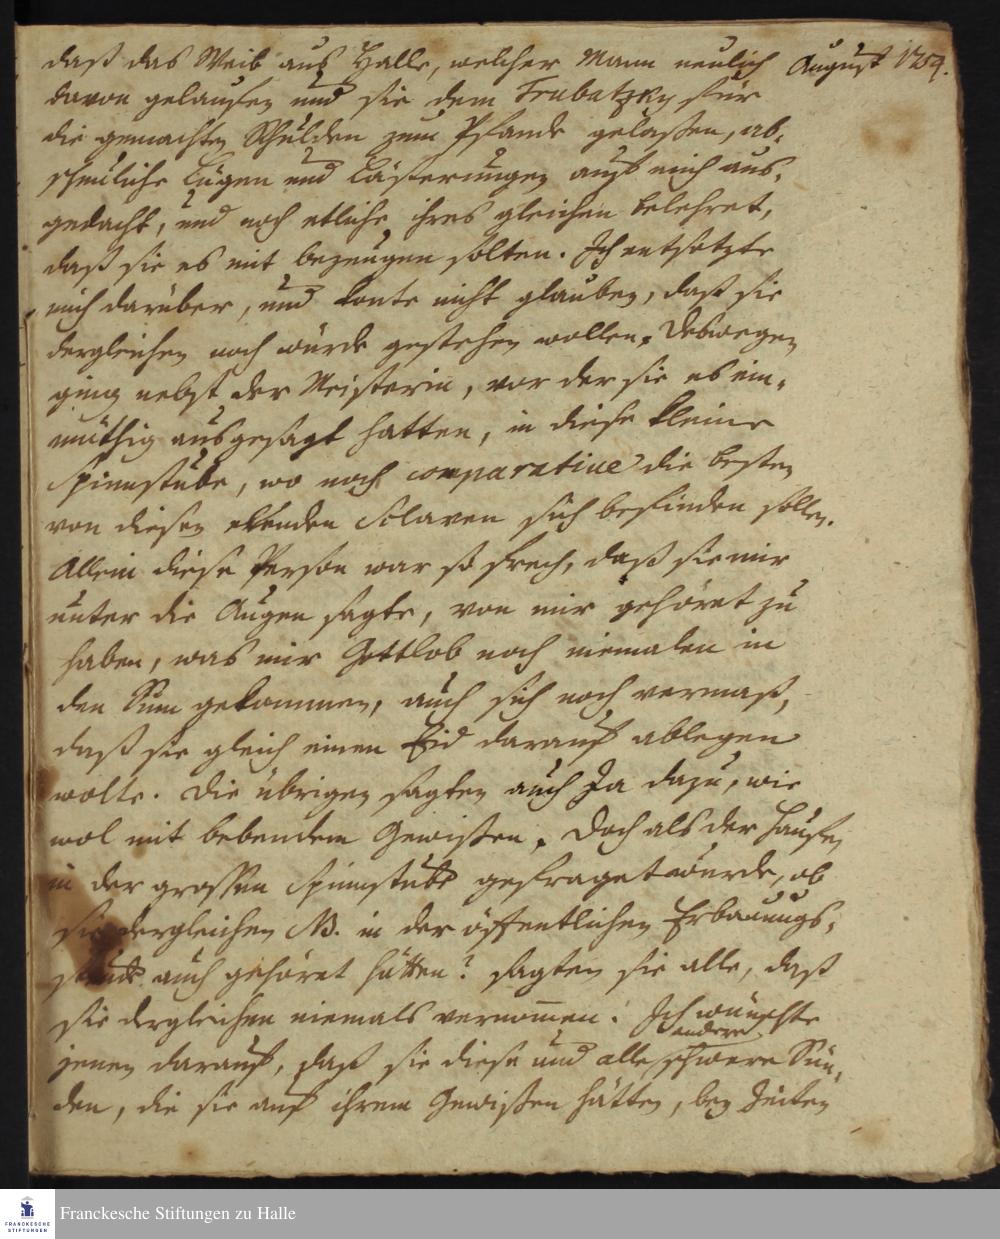 daß das Weib aus Halle, welcher Mann neulich
August 1754.
davon gelaufen und sie dem Trubatzky für
die gemachten Schulden zum Pfande gelaßen, ab-
scheuliche Lügen und Lästerungen auf mich aus-
gedacht, und noch etliche ihres gleichen belehret,
daß sie es mit bezeugen solten. Ich entsetzte
mich darüber, und konte nicht glauben, daß sie
dergleichen noch würde gestehen wollen. Deswegen
ging nebst der Meisterin, vor der sie es ein-
müthig ausgesagt hatten, in diese kleine
Spinnstube, wo noch comparative die besten
von diesen elenden Sclaven sich befinden sollen.
Allein diese Person war so frech, daß sie mir
unter die Augen sagte, von mir gehöret zu
haben, was mir Gottlob noch niemalen in
den Sinn gekommen, auch sich noch vermaß,
daß sie gleich einen Eid darauf ablegen
wolte. Die übrigen sagten auch Ja dazu, wie
wol mit bebendem Gewißen. Doch als der Haufen
in der grossen Spinnstube gefraget wurde, ob
sie dergleichen NB. in der öffentlichen Erbauungs-
stunde auch gehöret hätten? sagten sie alle, daß
sie dergleichen niemals vernommen. Ich wünschte
andere
jenen darauf, daß sie diese und alle schwere Sün-
den, die sie auf ihrem Gewißen hätten, bey Zeiten
Franckesche Stiftungen zu Halle
FRANCKESCHE
STIFTUNGEN